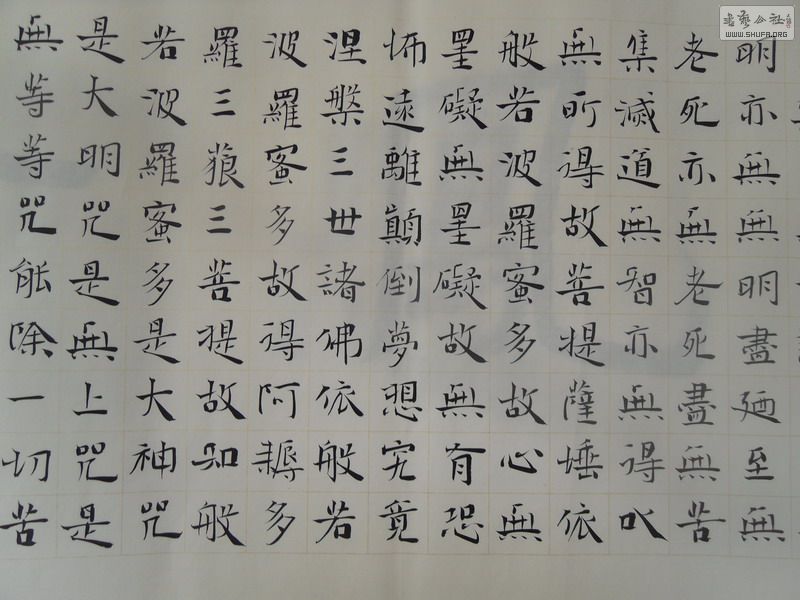 明亦無無明盡廼至無
老死亦無老死盡無苦
集滅道無智亦無得以
無所得故菩提薩埵依
般若波羅蜜多故心無
罣礙無罣礙故無有恐
怖遠離顛倒夢想究竟
涅槃三世諸佛依般若
波羅蜜多故得阿耨多
羅三藐三菩提故知般
若波羅蜜多是大神咒
是大明咒是無上咒是
無等等咒能除一切苦
書藝公社
WWW.SHUFA.ORG